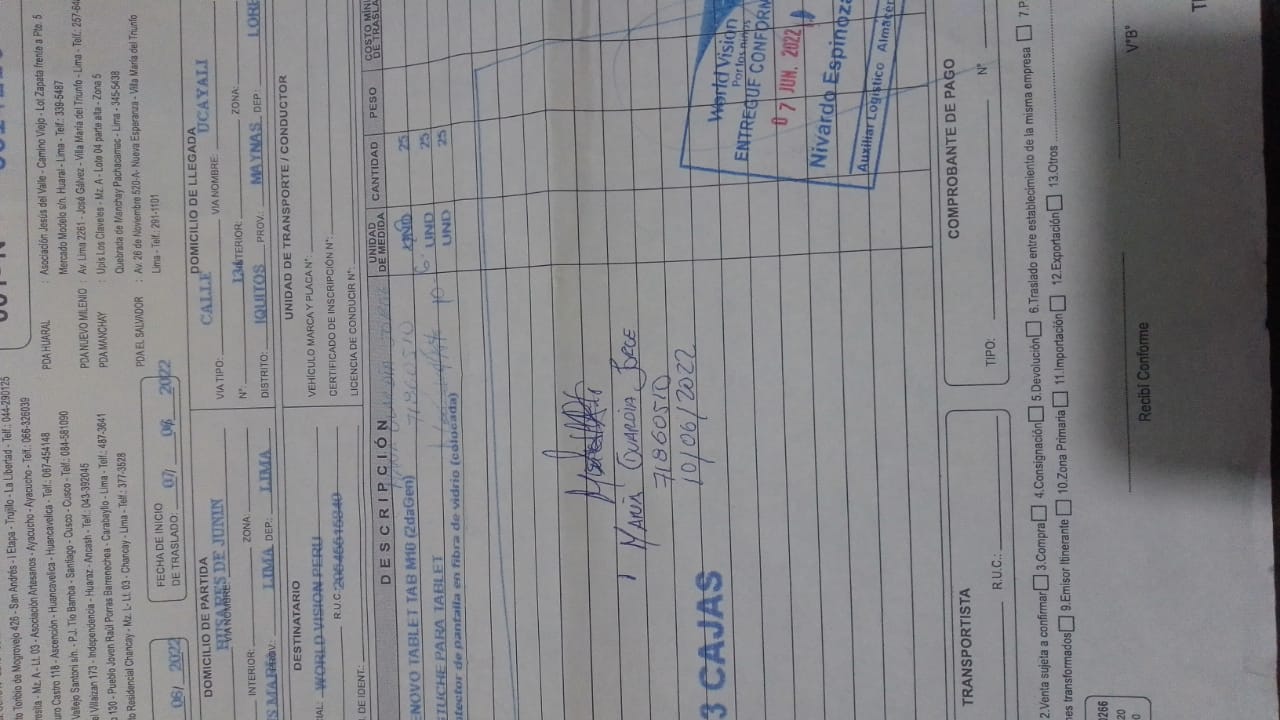 to Toribio de Mogrovejo 426 - San Andrés - I Etapa - Trujillo - La Libertad - Telf.: 044-290125
- Mz. A - Lt. 03 - Asociación Artesanos - Ayacucho - Telf.: 066-326039
uro Castro 118 - Ascención - Huancavelica - Huancavelica - Telf.: 067-454148
Vallejo Santori s/n. - P.J. Tío Bamba - Santiago - Cusco - Cusco - Telf.: 084-581090
Villaizan 173 - Independencia - Huaraz - Ancash - Telf.: 043-392045
130 - Pueblo Joven Raúl Porras Barrenechea - Carabayllo - Lima - Telf.: 487-3641
Residencial Chancay - Mz. L- Lt. 03 - Chancay - Lima - Telf.: 377-3528
PDA HUARAL : Asociación Jesús del Valle - Camino Viejo - Lot Zapata frente a Pte. 5
Mercado Modelo s/n. Huaral - Lima - Telf.: 339-5487
PDA NUEVO MILENIO : Av. Lima 2261 - José Gálvez - Villa María del Triunfo - Lima - Telf.: 257-64
PDA MANCHAY : Upis Los Claveles - Mz. A - Lote 04 parte alta - Zona 5
Quebrada de Manchay Pachacamac - Lima - 345-5438
PDA EL SALVADOR : Av. 26 de Noviembre 520-A- Nueva Esperanza - Villa María del Triunfo
Lima - Telf.: 291-1101
06/ 2022
FECHA DE INICIO
DE TRASLADO: 07/ 06 2022
DOMICILIO DE PARTIDA
HUSARES DE JUNIN
VIA NOMBRE:
INTERIOR: ZONA:
LIMA DEP.: LIMA
DOMICILIO DE LLEGADA
VIA TIPO: CALLE VIA NOMBRE: UCAYALI
N°: 134 INTERIOR: ZONA:
DISTRITO: IQUITOS PROV.: MAYNAS DEP.: LORE
DESTINATARIO
WORLD VISION PERU
R.U.C.
UNIDAD DE TRANSPORTE / CONDUCTOR
VEHÍCULO MARCA Y PLACA N°:
CERTIFICADO DE INSCRIPCIÓN N°:
LICENCIA DE CONDUCIR N°:
DESCRIPCIÓN UNIDAD DE MEDIDA CANTIDAD PESO COSTO MÍNI DE TRASLA
NOVO TABLET TAB M10 (2daGen) 71860510 UND 25
TUCHE PARA TABLET UND 25
tector de pantalla en fibra de vidrio (colocada) UND 25
MARIÑ GUARDIA JORGE
71860510
10/06/2022
3 CAJAS
World Vision
Por los niños
ENTREGUE CONFORM
07 JUN. 2022
Nivardo Espinoza
Auxiliar Logístico Almacén
TRANSPORTISTA
R.U.C.:
COMPROBANTE DE PAGO
TIPO: N°
2.Venta sujeta a confirmar 3.Compra 4.Consignación 5.Devolución 6.Traslado entre establecimiento de la misma empresa 7.P
nes transformados 9.Emisor Itinerante 10.Zona Primaria 11.Importación 12.Exportación 13.Otros
266
20
Recibí Conforme
V°B°